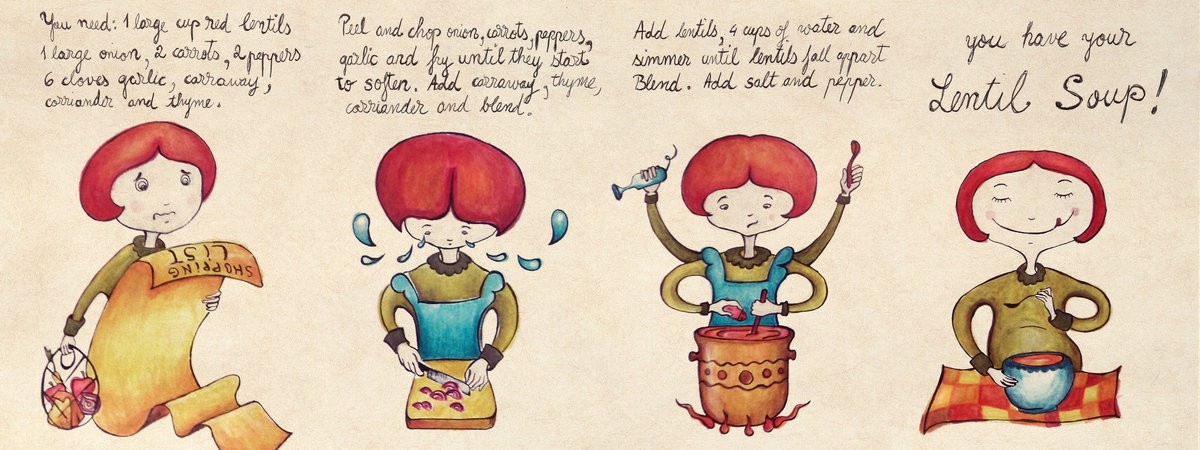 You need: 1 large cup red lentils
1 large onion, 2 carrots, 2 peppers
6 cloves garlic, carraway,
corriander and thyme.
Peel and chop onion, carrots, peppers,
garlic and fry until they start
to soften. Add carraway, thyme,
corriander and blend.
Add lentils, 4 cups of water and
simmer until lentils fall appart
Blend. Add salt and pepper.
you have your
Lentil Soup!
SHOPPING
LIST